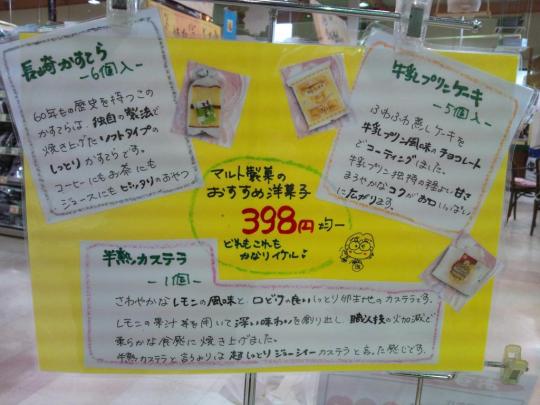 長崎かすてら
-6個入-
60年もの歴史を持つこの
かすてらは、独自の製法で
焼き上げたソフトタイプの
しっとりかすてらです。
コーヒーにもお茶にも
ジュースにもピッタリのおやつ
牛乳プリンケーキ
-5個入-
ふわふわ蒸しケーキを
牛乳プリン風味のチョコレート
でコーティングしました。
牛乳プリン独特の程よい甘さ
まろやかなコクがお口いっぱい
に広がります。
マルト製菓の
おすすめ洋菓子
398円均一
どれもこれも
かなりイケル♪
半熟カステラ
-1個-
さわやかなレモンの風味と、口どけの良いしっとり卵生地のカステラです。
レモンの果汁等を用いて深い味わいを創り出し、職人技の火加減で
柔らかな食感に焼き上げました。
半熟カステラと言うよりは超しっとりジューシーカステラと言った感じです。